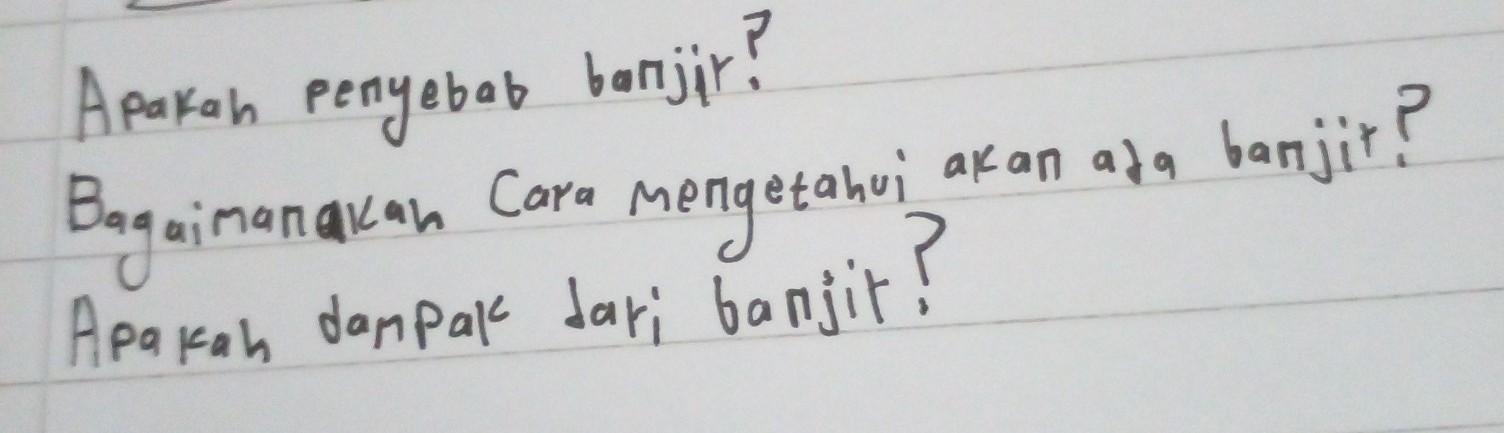 Apakah penyebab banjir?
Bagaimanakah Cara mengetahui akan ada banjir?
Apakah dampak dari banjir?